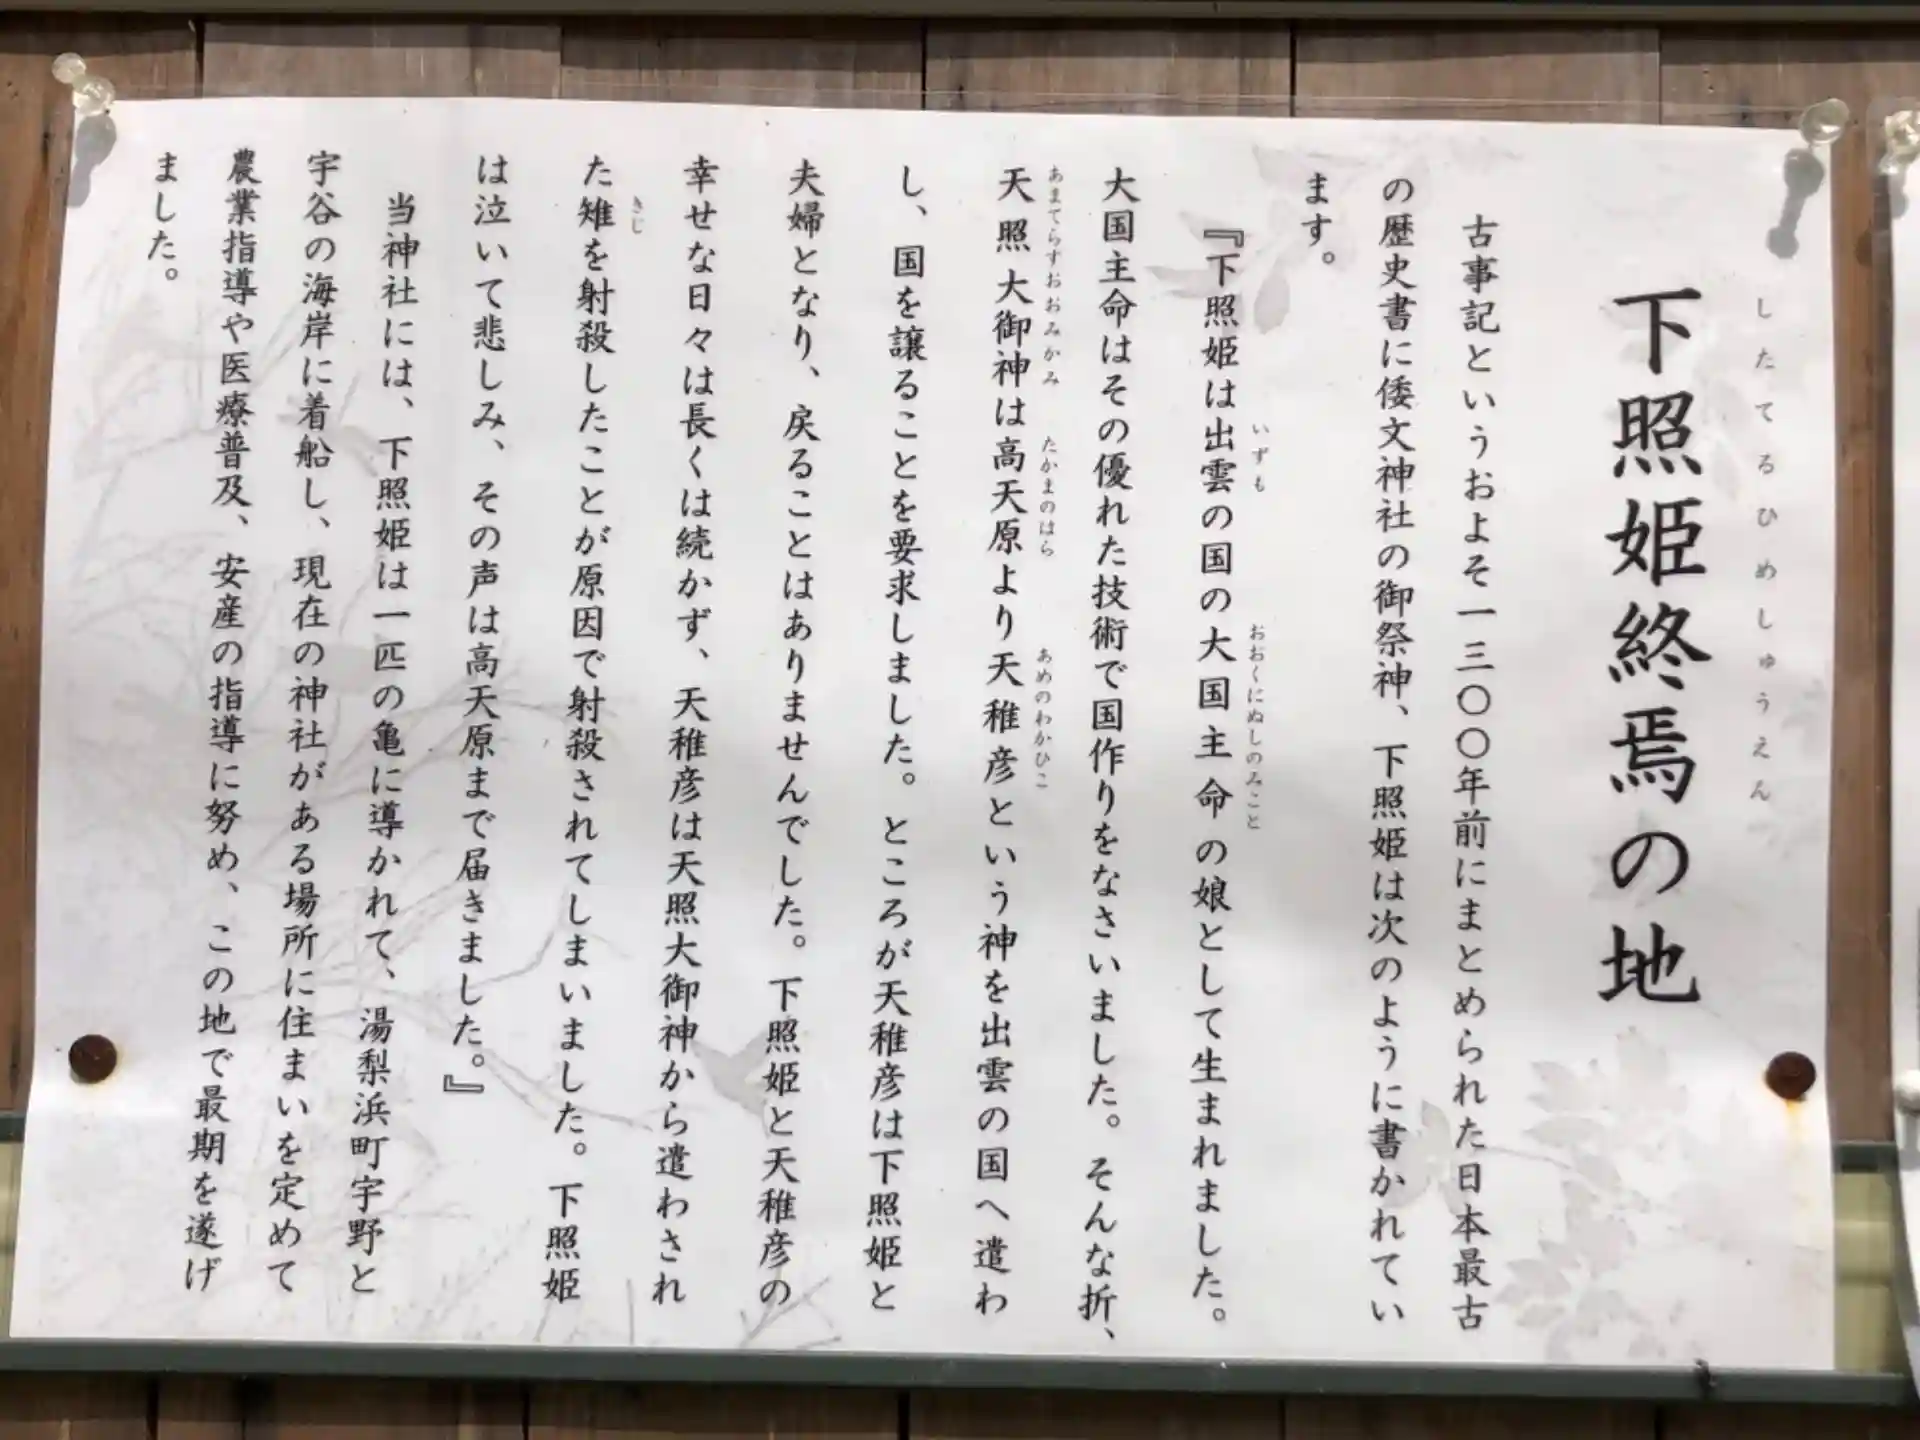 下照姫終焉の地
したてるひめしゅうえん
古事記というおよそ一三〇〇年前にまとめられた日本最古
の歴史書に倭文神社の御祭神、下照姫は次のように書かれてい
ます。
『下照姫は出雲の国の大国主命の娘として生まれました。
いずも
おおくにぬしのみこと
大国主命はその優れた技術で国作りをなさいました。そんな折、
天照大御神は高天原より天稚彦という神を出雲の国へ遣わ
あまてらすおおみかみ
たかまのはら
あめのわかひこ
し、国を譲ることを要求しました。ところが天稚彦は下照姫と
夫婦となり、戻ることはありませんでした。下照姫と天稚彦の
幸せな日々は長くは続かず、天稚彦は天照大御神から遣わされ
た雉を射殺したことが原因で射殺されてしまいました。下照姫
きじ
は泣いて悲しみ、その声は高天原まで届きました。』
当神社には、下照姫は一匹の亀に導かれて、湯梨浜町宇野と
宇谷の海岸に着船し、現在の神社がある場所に住まいを定めて
農業指導や医療普及、安産の指導に努め、この地で最期を遂げ
ました。